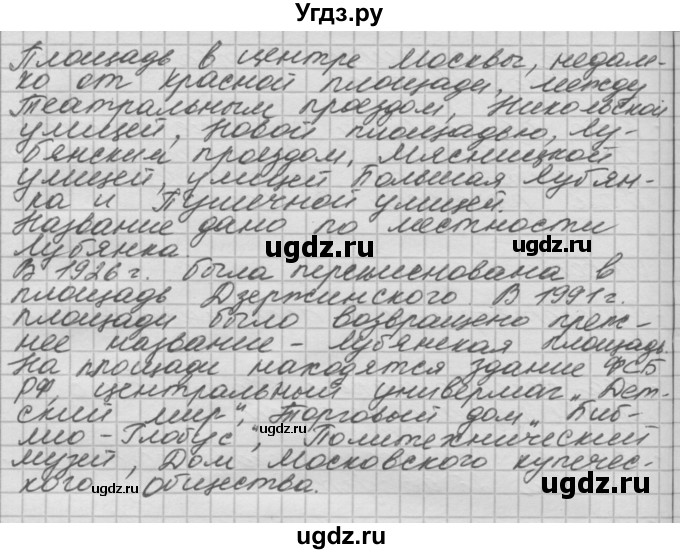 Угдз.ру
Площадь в центре Москвы, недале-
ко от Красной площади, между
Театральным проездом, Никольской
улицей, Новой площадью, Лу-
бянским проездом, Мясницкой
улицей, улицей Большая Лубян-
ка и Пушечной улицей.
Название дано по местности
Лубянка.
ugdz.ru
ugdz.ru
В 1926 г. была переименована в
площадь Дзержинского. В 1991 г.
площади было возвращено преж-
нее название – Лубянская площадь.
На площади находятся здание ФСБ
РФ, центральный универмаг „Дет-
ский мир", Торговый дом „Биб-
лио-Глобус", Политехнический
музей, Дом Московского купечес-
кого общества.
ugdz.ru
ugdz.ru
ugdz.ru
ugdz.ru